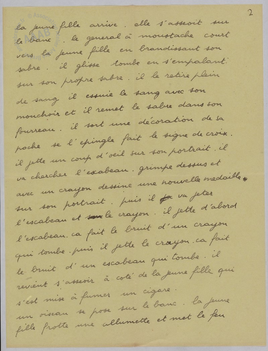 2
la jeune fille arrive. elle s'asseoit sur
le banc. le general à moustache court
vers la jeune fille en brandissant son
sabre. il glisse tombe en s'empalant
sur son propre sabre. il le retire plein
de sang. il essuie le sang avec son
mouchoir et il remet le sabre dans son
fourreau. il sort une décoration de sa
poche se l'épingle fait le signe de croix.
il jette un coup d'œil sur son portrait. il
va chercher l'escabeau. grimpe dessus et
avec un crayon dessine une nouvelle médaille
sur son portrait. puis il va jeter
l'escabeau et le crayon. il jette d'abord
l'escabeau ça fait le bruit d'un crayon
qui tombe. puis il jette le crayon. ça fait
le bruit d'un escabeau qui tombe. il
revient s'asseoir à coté de la jeune fille qui
s'est mise à fumer un cigare.
un oiseau se pose sur le banc. la jeune
fille frotte une allumette et met le feu